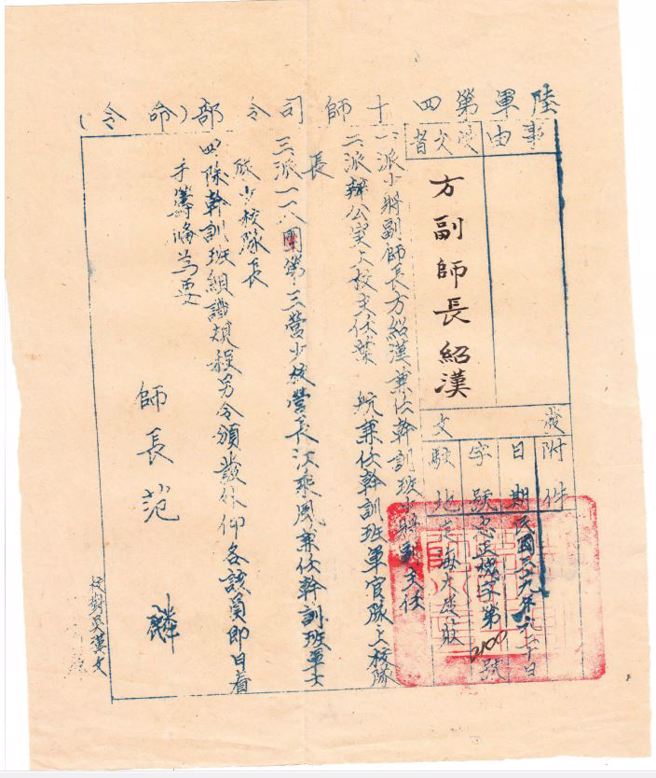 陸軍第四十師司令部(命令)
事由
受文者
方副師長紹漢
發文
附件
日期 民國三九年
字號 忠正機字第2100號
駐地
一、派少將副師長方紹漢兼任幹訓班少將副主任
二、派辦公室上校主任葉 航兼任幹訓班軍官隊上校隊
長
三、派一一八團第三營少校營長江乘風兼任幹訓班軍士
隊少校隊長
四、幹訓班組識規程另令頒發外仰各該員即日着
手籌備為要
師長范 麟
校對吳漢文